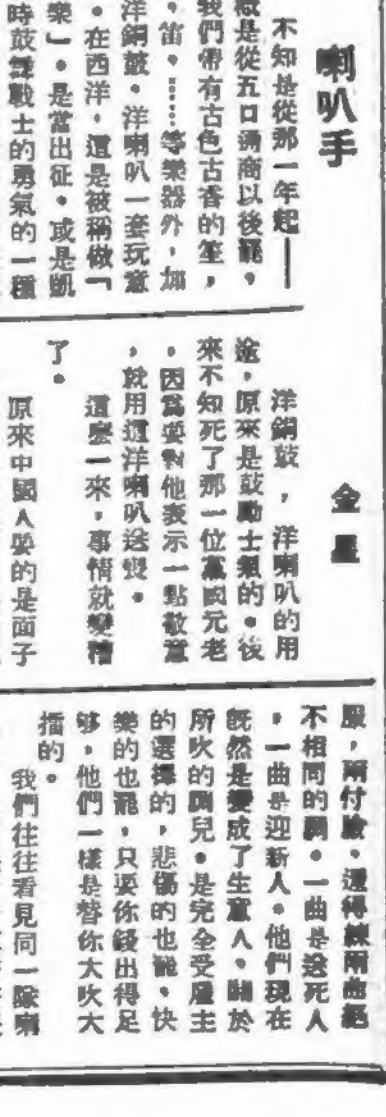 喇叭手
金星
不知是從那一年起——
概是從五口通商以後罷，
我們帶有古色古香的笙，
，笛，……等樂器外，加
洋銅鼓，洋喇叭一套玩意
。在西洋，這是被稱做「
樂」。是當出征，或是凱
時鼓舞戰士的勇氣的一種
洋銅鼓，洋喇叭的用
途，原來是鼓勵士氣的。後
來不知死了那一位黨國元老
，因爲要對他表示一點敬意
，就用這洋喇叭送喪。
這麽一來，事情就變糟
了。
原來中國人要的是面子
服，兩付臉。還得練兩曲絕
不相同的調。一曲是送死人
，一曲是迎新人。他們現在
既然是變成了生意人。關於
所吹的調兒。是完全受雇主
的選擇的，悲傷的也罷，快
樂的也罷，只要你錢出得足
够，他們一樣是替你大吹大
擂的。
我們往往看見同一隊喇